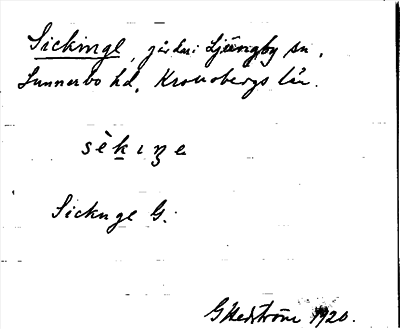 Sickinge, gård i Ljungby sn,
Sunnerbo hd, Kronobergs län.
sèkıŋe
Sicknge G.
G Hedström 1920.